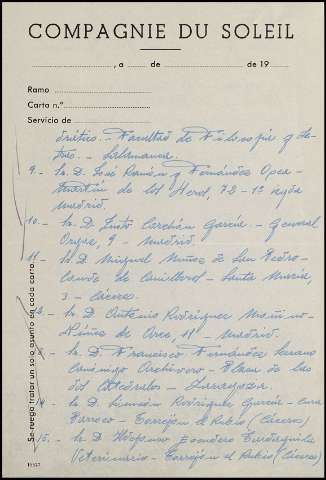 COMPAGNIE DU SOLEIL
, a de de 19
Ramo
Carta n.º
Servicio de
Facultad de Filosofia y Le-
tras. - Salamanca.
9.- Sr. D. José Ramón y Fernández Ocea -
Martín de los Heros, 72-1º
Madrid.
10.- Sr. D. Justo García -
9 - Madrid.
11.- Sr D. Miguel Muñoz de San Pedro -
Conde de Canilleros - Santa María,
3 - Cáceres.
12.- Sr. D. Antonio Rodríguez Moñino -
de Arce, 11 - Madrid.
Sr. D. Francisco Fernández Serrano
Canónigo Archivero - Plaza de las
Catedrales - Zaragoza.
14.- Sr. D. Rodríguez García - Cura
Párroco - Torrejón el Rubio (Cáceres)
15.- Sr D. Ildefonso
Veterinario - Torrejón el Rubio (Cáceres)
Se ruega tratar un solo asunto en cada carta